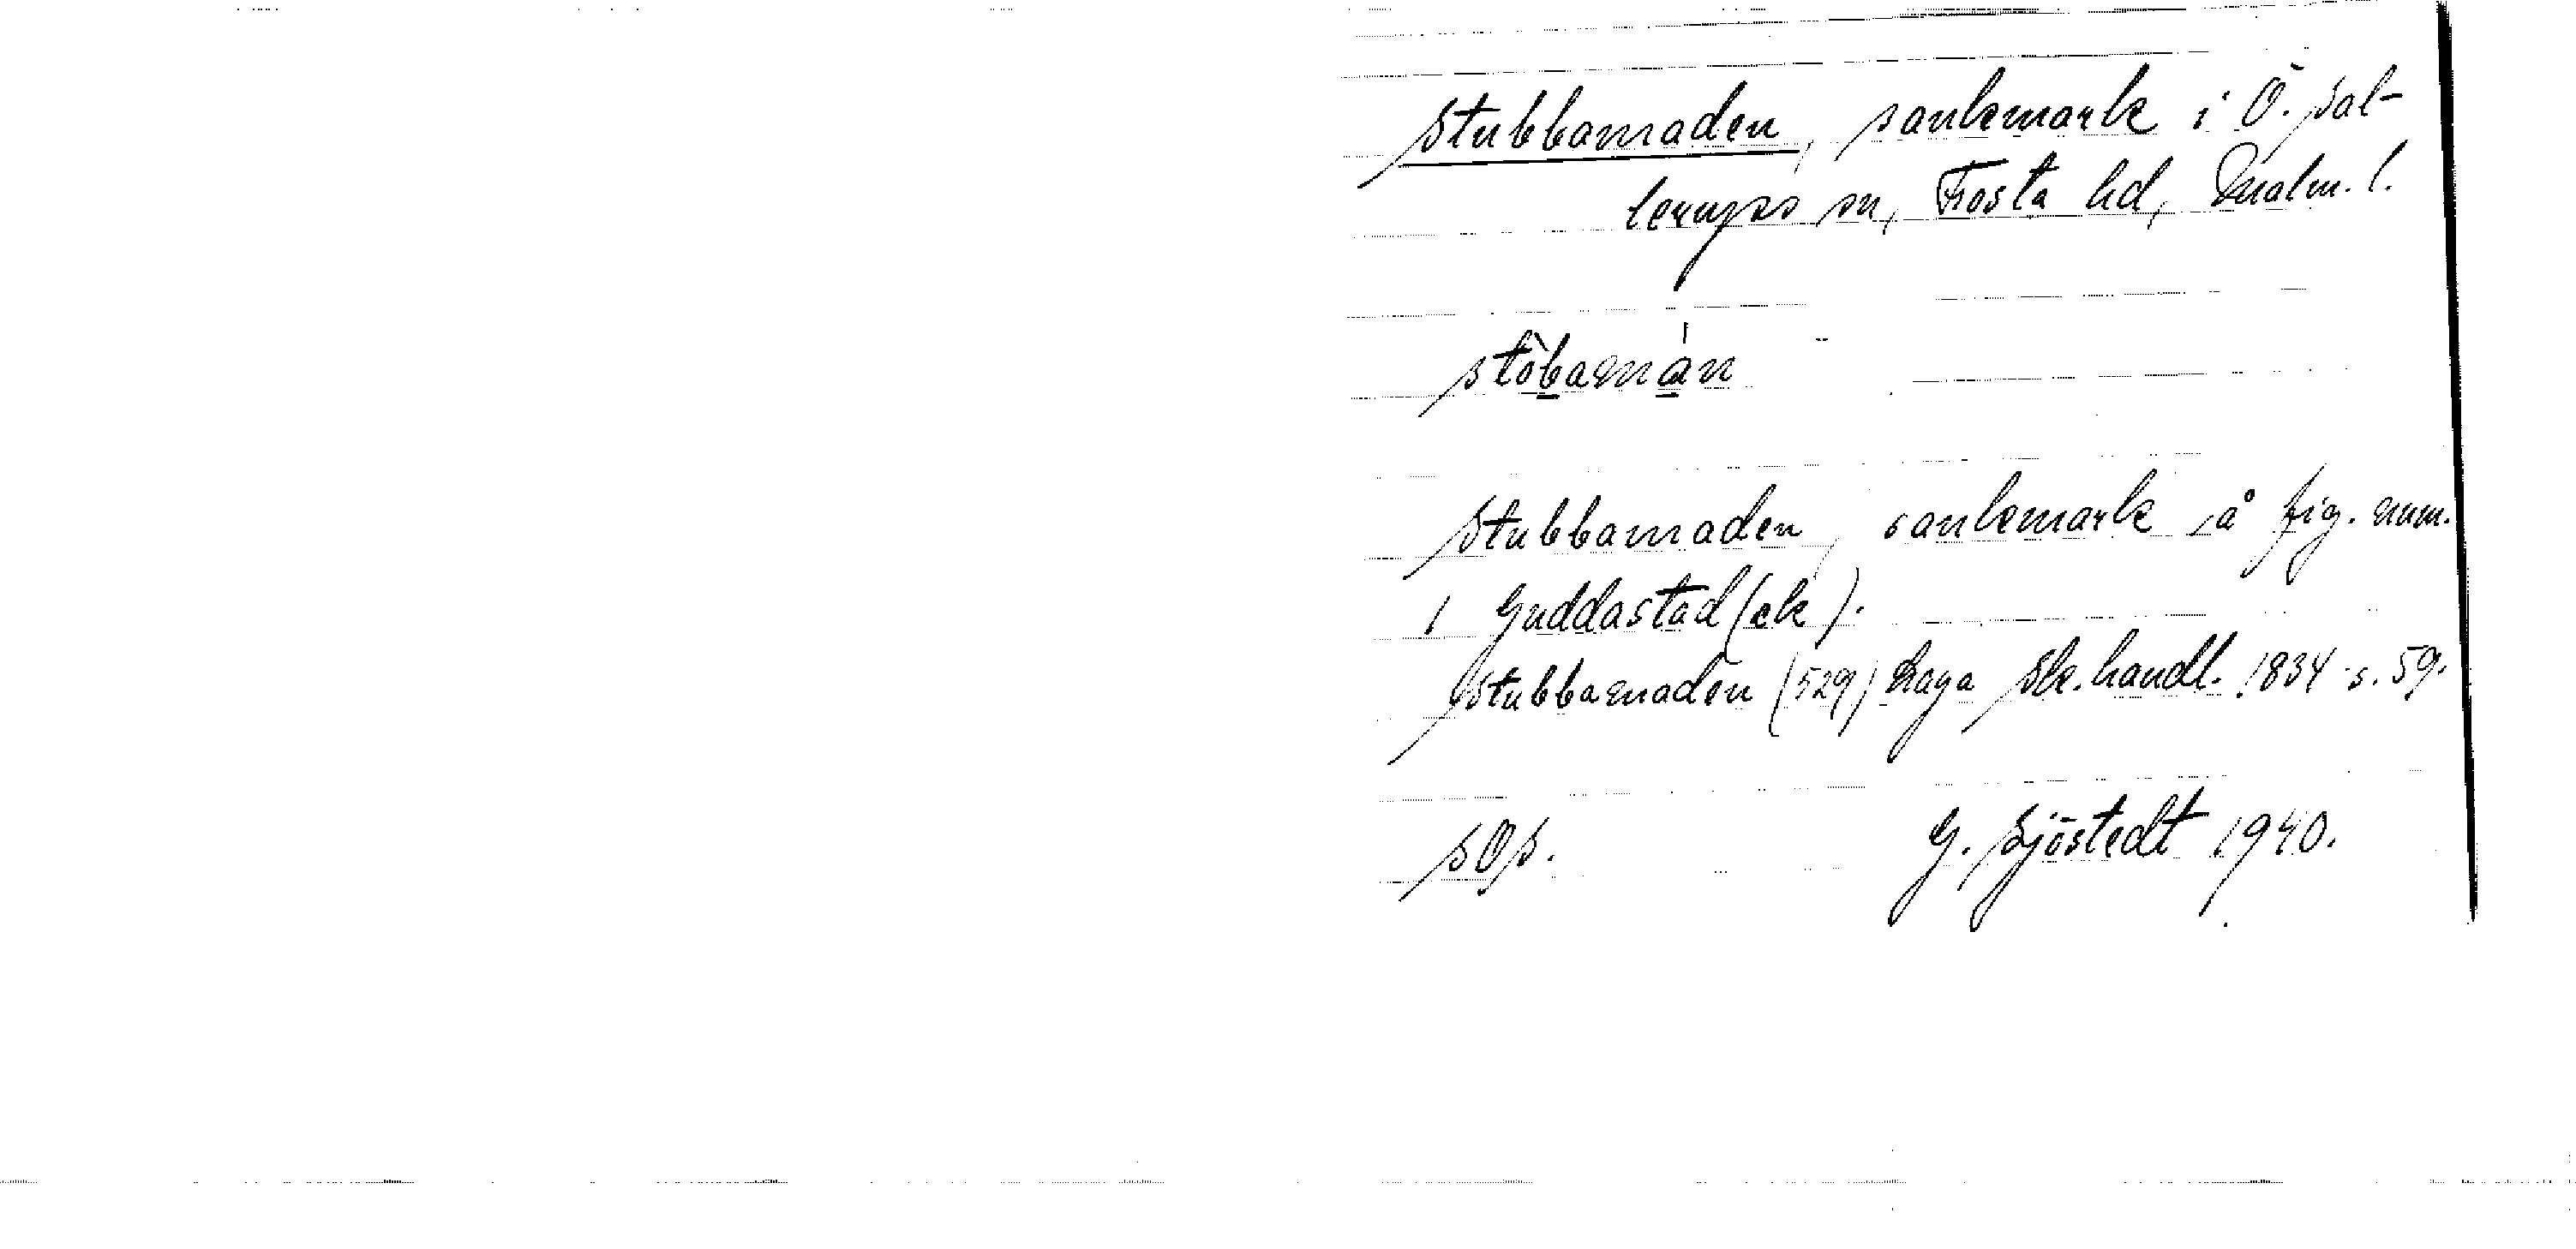 Stubbamaden, sankmark i Ö. Sal-
lerups sn, Frosta hd, Malm. l.
stòbamán
Stubbamaden, sankmark å fig. num.
1 Guddastad (ek).
Stubbamaden (529) Laga sk. handl. 1834 s. 59.
SOS.
G. Sjöstedt 1940.